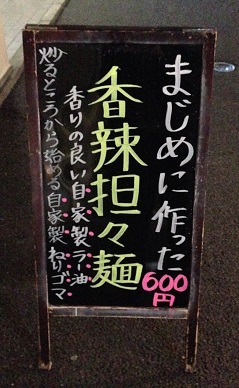 まじめに作った
600円
香辣担々麺
香りの良い自家製ラー油
炒るところから始める自家製ねりゴマ